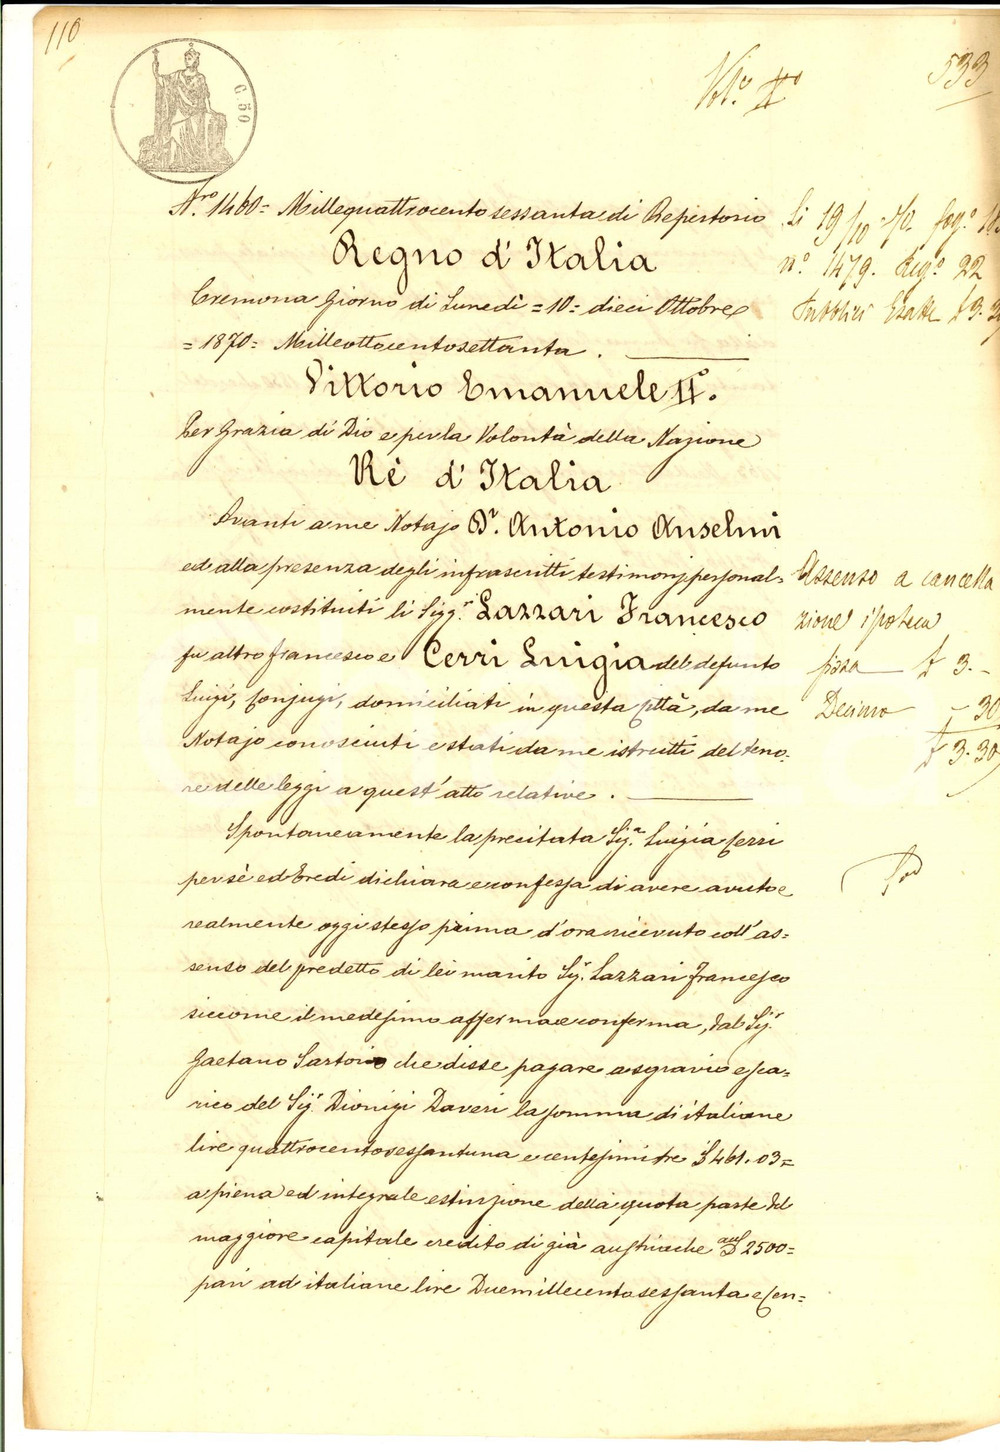 110
C. 50
Vol.e II°
533
N.ro 1460= Millequattrocentosessanta di Repertorio
Regno d'Italia
Cremona Giorno di Lunedì =10= dieci Ottobre
=1870= Milleottocentosettanta.
Vittorio Emanuele II°.
Per Grazia di Dio e per la Volontà della Nazione
Rè d'Italia
Avanti a me Notajo D.r Antonio Anselmi
ed alla presenza degli infrascritti testimonj personal=
mente costituiti li Sigg.ri Lazzari Francesco
fu altro Francesco e Cerri Luigia del defunto
Luigi, Conjugi, domiciliati in questa Città, da me
Notajo conosciuti e stati da me istrutti del teno-
re delle leggi a quest'atto relative.
Spontaneamente la precitata Sig.ra Luigia Cerri
per sè ed Eredi dichiara e confessa di avere avuto e
realmente oggi stesso prima d'ora ricevuto coll'as=
senso del predetto di lei marito Sig.r Lazzari Francesco
siccome il medesimo afferma e conferma, dal Sig.r
Gaetano Sartori che disse pagare a sgravio e sca=
rico del Sig.r Dionigi Daveri la somma di italiane
lire quattrocentosessantuna e centesimi tre £ 461.03=
a piena ed integrale estinzione della quota parte del
maggiore capitale credito di già austriache aus£ 2500=
pari ad italiane lire Duemillecentosessanta e Cen=
Li 19/10 70. fog.°
n.° 1479. Reg.° 22
Pubblici Esatte £ 3.
Assenso a cancella
zione ipoteca
fissa £ 3.-
Decimo - 30
£ 3.30